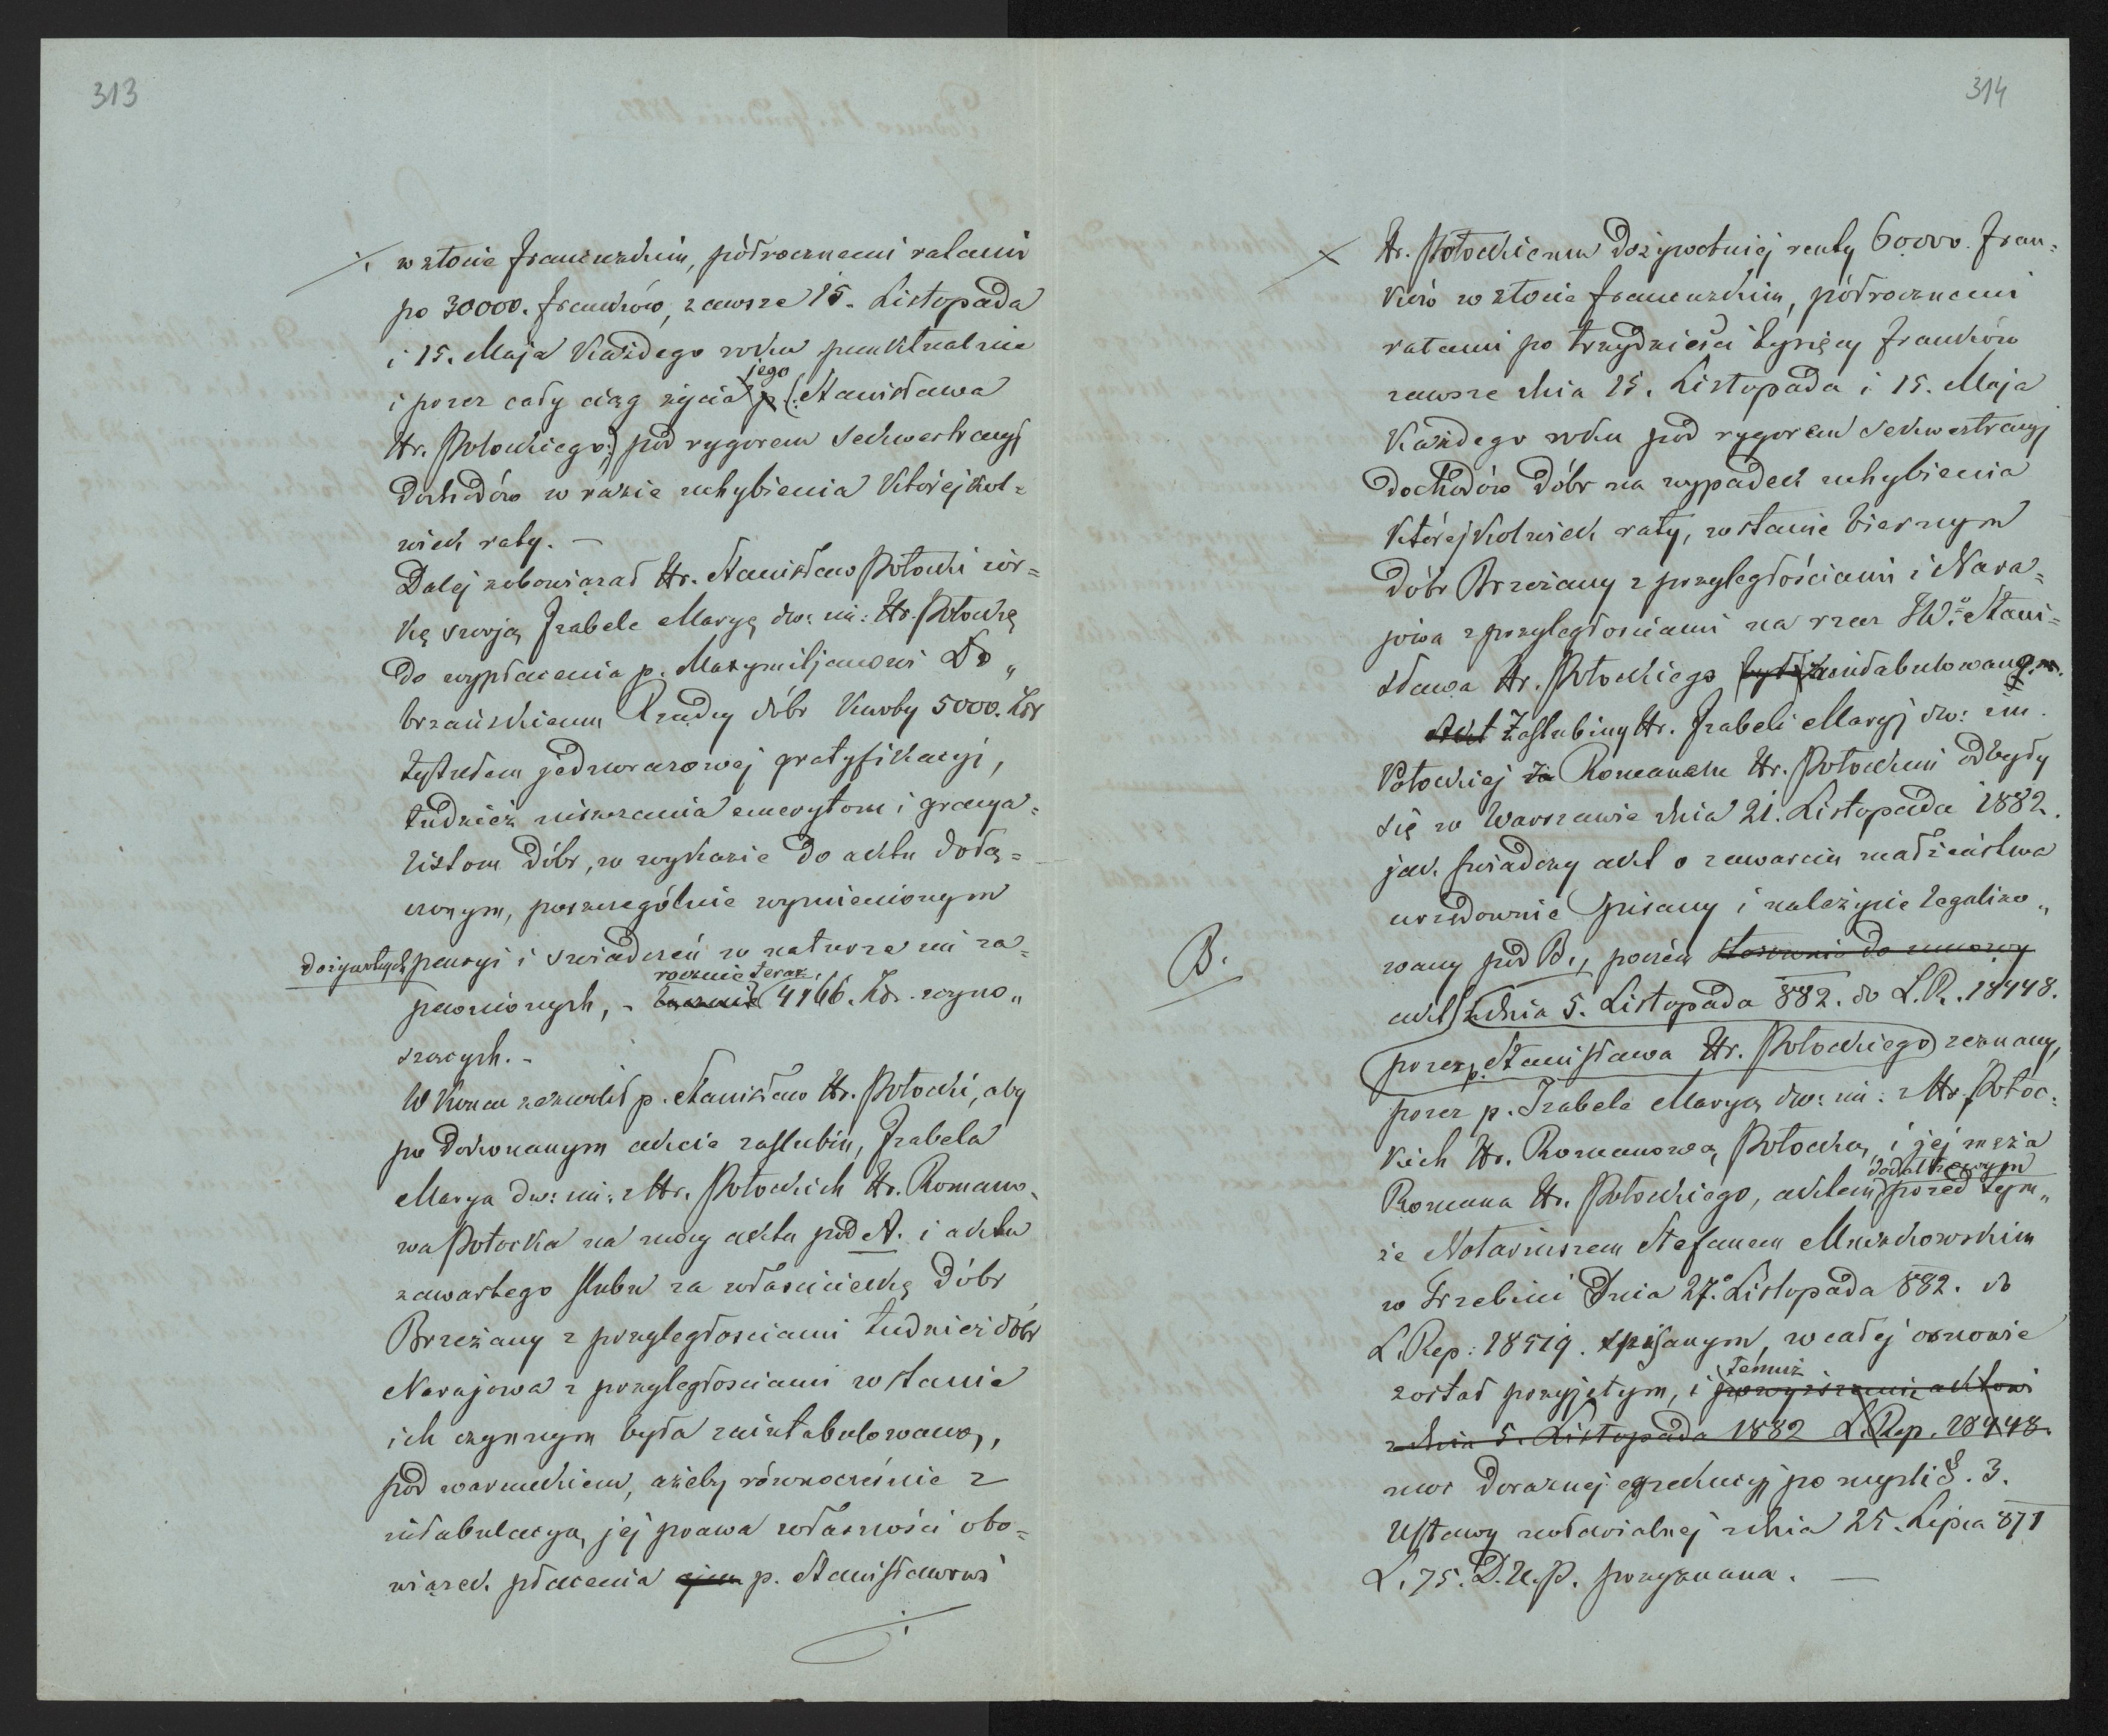 313
w złocie francuzkim, półrocznemi ratami
po 30000. franków, zawsze 15. Listopada
i 15. Maja każdego roku punktualnie
jego
i przez cały ciąg życia p (:Stanisława
Hr. Potockiego:) pod rygorem sekwestracyj
dochodów w razie uchybienia którejkol=
wiek raty. —
Dalej zobowiązał Hr. Stanisław Potocki cór=
kę swoją Izabelę Maryę dw: im: Hr. Potocką
do wypłacenia p. Maxymiljanowi Do„
brzańskiemu Rządcy dóbr kwoty 5000. Złr
tytułem jednorazowej gratyfikacyi,
tudzież uiszczania emerytom i gracya=
listom dóbr, w wykazie do aktu dołą=
czonym, poszczególnie wymienionym
dożywotnych pensyi i świadczeń w naturze im za=
rocznie teraz
pewnionych, - 4166. Złr. wyno„
szących. -
W końcu zezwolił p. Stanisław Hr. Potocki, aby
po dokonanym akcie zaślubin, Izabela
Marya dw: im: z Hr. Potockich Hr. Romano-
wa Potocka na mocy aktu pod A. i aktu
zawartego ślubu za właścicielkę dóbr
Brzeżany z przyległościami tudzież dóbr
Narajowa z przyległościami w stanie
ich czynnym była zaintabulowaną,
pod warunkiem, ażeby równocześnie z
intabulacyą jej prawa własności obo=
wiązek płacenia p. Stanisławowi
314
Hr. Potockiemu dożywotniej renty 60000. fran=
ków w złocie francuzkim, półrocznemi
ratami po trzydzieści tysięcy franków
zawsze dnia 15. Listopada i 15. Maja
każdego roku pod rygorem sekwestracyj
dochodów dóbr na wypadek uchybienia
którejkolwiek raty, w stanie biernym
dóbr Brzeżany z przyległościami i Nara=
jowa z przyległościami na rzecz JWo Stani=
sława Hr. Potockiego był zaintabulowanym.
Akt Zaślubiny Hr. Izabeli Maryj dw: im.
Potockiej za Romanem Hr. Potockim odbyły
się w Warszawie dnia 21. Listopada 1882.
jak świadczy akt o zawarciu małżeństwa
urzędownie spisany i należycie legalizo„
B.
wany pod B., poczém stosownie do umowy
akt z dnia 5. Listopada 882. do L.R. 18448.
przez p. Stanisława Hr. Potockiego zeznany,
przez p. Izabelę Maryą dw: im: z Hr. Potoc=
kich Hr. Romanową Potocką, i jej męża
dodatkowym
Romana Hr. Potockiego, aktem przed tym„
że Notaryuszem Stefanem Muczkowskim
w Trzebini dnia 27. Listopada 882. do
L. Rep: 18519. spisanym, w całej osnowie
temuż
został przyjętym, i powyższemu aktowi
z dnia 5. Listopada 1882 L. Rep. 18448.
moc doraźnej egzekucyj po myśli §. 3.
Ustawy notarialnej z dnia 25. Lipca 871
L. 75. D.U.P. przyznana. —